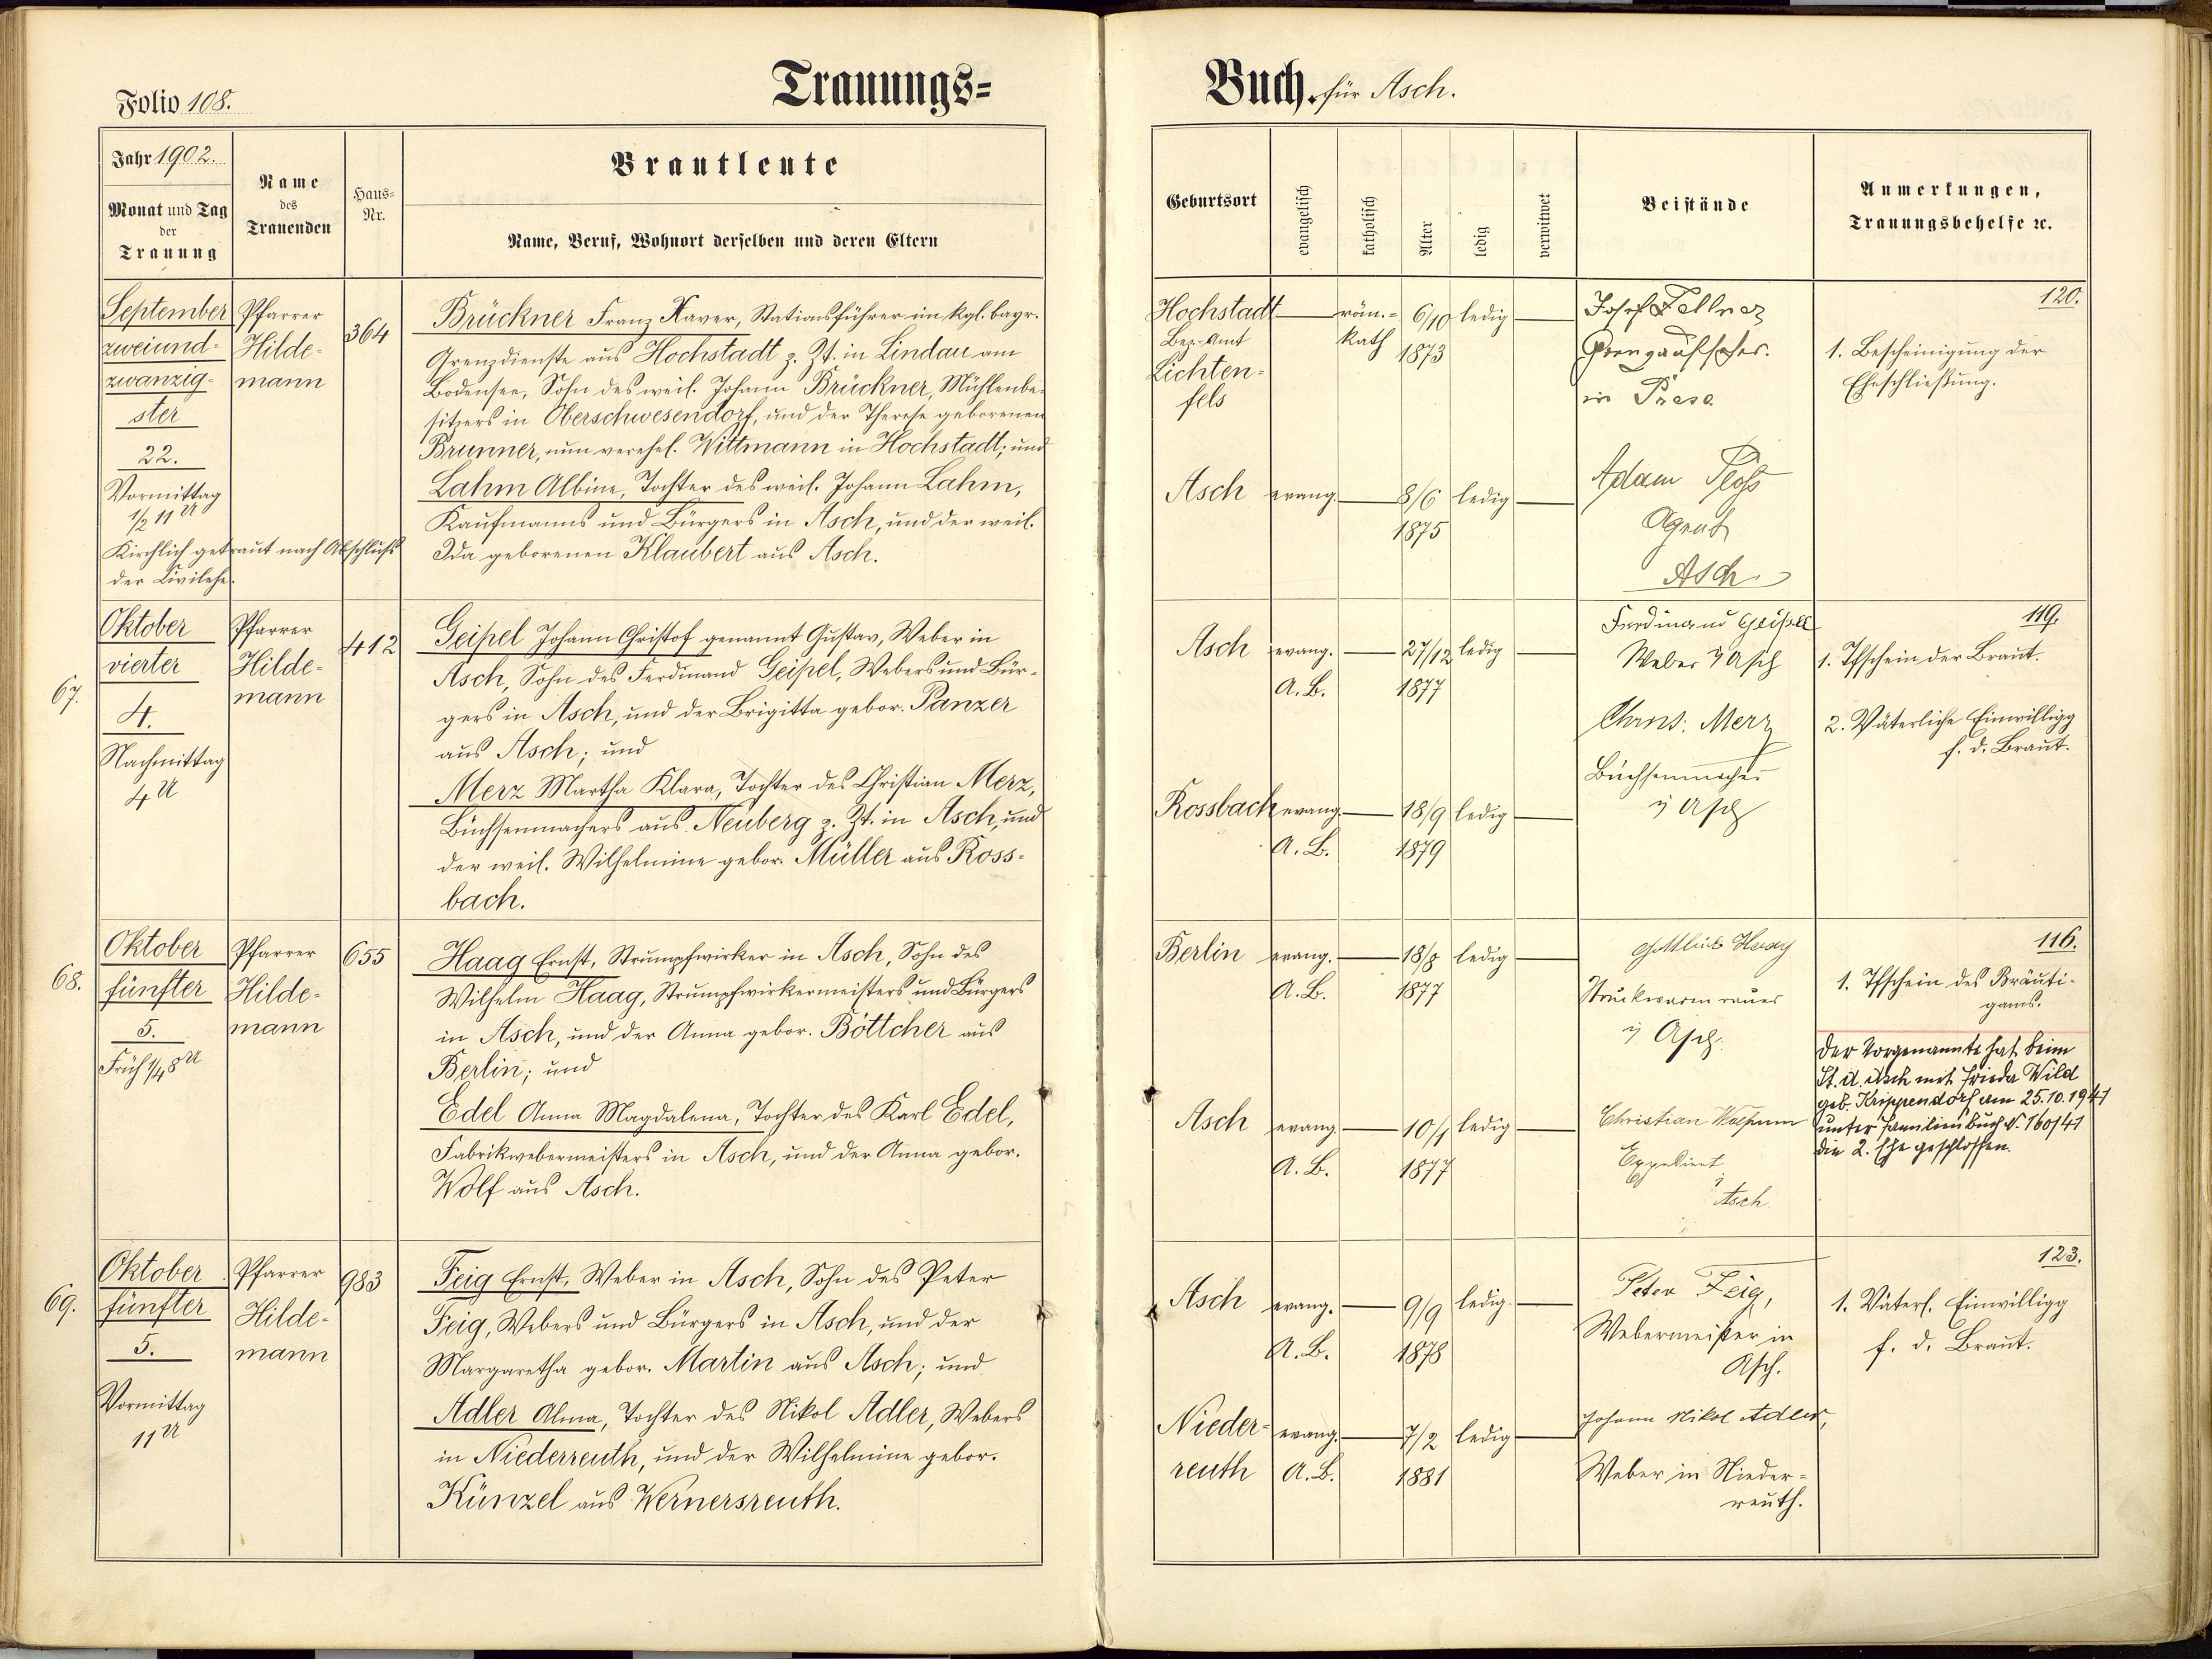 Trauungs=
Folio 108.
Jahr 1902.
Monat und Tag
der
Trauung
Name
des
Trauenden
Haus=
Nr.
Brautleute
Name, Beruf, Wohnort derselben und deren Eltern
September
zweiund=
zwanzig=
ster
22.
Vormittag
1/2 11 U
Kirchlich getraut nach Abschluß
der Civilehe.
Pfarrer
Hilde=
mann
364
Brückner Franz Xaver, Stationsführer im kgl. bayr.
Grenzdienste aus Hochstadt z. Zt. in Lindau am
Bodensee, Sohn des weil. Johann Brückner, Mühlenbe=
sitzers in Oberschwesendorf, und der Therese geborenen
Brunner, nun verehel. Wittmann in Hochstadt; und
Lahm Albine, Tochter des weil. Johann Lahm,
Kaufmanns und Bürgers in Asch, und der weil.
Ida geborenen Klaubert aus Asch.
67.
Oktober
vierter
4.
Nachmittag
4 U
Pfarrer
Hilde=
mann
412
Geipel Johann Christof genannt Gustav, Weber in
Asch, Sohn des Ferdinand Geipel, Webers und Bür=
gers in Asch, und der Brigitta gebor. Panzer
aus Asch; und
Merz Martha Klara, Tochter des Christian Merz,
Büchsenmachers aus Neuberg z. Zt. in Asch, und
der weil. Wilhelmine gebor. Müller aus Ross=
bach.
68.
Oktober
fünfter
5.
Früh 1/4 8 U
Pfarrer
Hilde=
mann
655
Haag Ernst, Strumpfwirker in Asch, Sohn des
Wilhelm Haag, Strumpfwirkermeisters und Bürgers
in Asch, und der Anna gebor. Böttcher aus
Berlin; und
Edel Anna Magdalena, Tochter des Karl Edel,
Fabrikwebermeisters in Asch, und der Anna gebor.
Wolf aus Asch.
69.
Oktober
fünfter
5.
Vormittag
11 U
Pfarrer
Hilde=
mann
983
Feig Ernst, Weber in Asch, Sohn des Peter
Feig, Webers und Bürgers in Asch, und der
Margaretha gebor. Martin aus Asch; und
Adler Alma, Tochter des Nikol Adler, Webers
in Niederreuth, und der Wilhelmine gebor.
Künzel aus Wernersreuth.
Buch für Asch.
Geburtsort
evangelisch
katholisch
Alter
ledig
verwitwet
Beistände
Anmerkungen,
Trauungsbehelfe ꝛc.
Hochstadt
Bez.-Amt
Lichten=
fels
röm.=
kath
6/10
1873
ledig
Josef Fellner
Grenzaufseher
in
120.
1. Bescheinigung der
Eheschließung.
Asch
evang.
8/6
1875
ledig
Adam
Agent
Asch
Asch
evang.
A. B.
27/12
1877
ledig
Ferdinand Geipel
Weber i Asch
119.
1. Tfschein der Braut.
2. Väterliche Einwilligg
f. d. Braut.
Rossbach
evang.
A. B.
18/9
1879
ledig
Christ. Merz
Büchsenmacher
i Asch
Berlin
evang.
A. B.
18/8
1877
ledig
Gottlieb Haag
i Asch
116.
1. Tfschein des Bräuti=
gams.
Der Vorgenannte hat beim
St. A. Asch mit Frieda Wild
geb. Krippendorf am 25.10.1941
unter Familienbuch N. 160/41
die 2. Ehe geschlossen.
Asch
evang.
A. B.
10/1
1877
ledig
Christian
Expedient
i
Asch.
Asch
evang.
A. B.
9/9
1878
ledig
Peter Feig,
Webermeister in
Asch.
123.
1. Väterl. Einwilligg
f. d. Braut.
Nieder=
reuth
evang.
A. B.
7/2
1881
ledig
Johann Nikol Adler,
Weber in Nieder=
reuth.